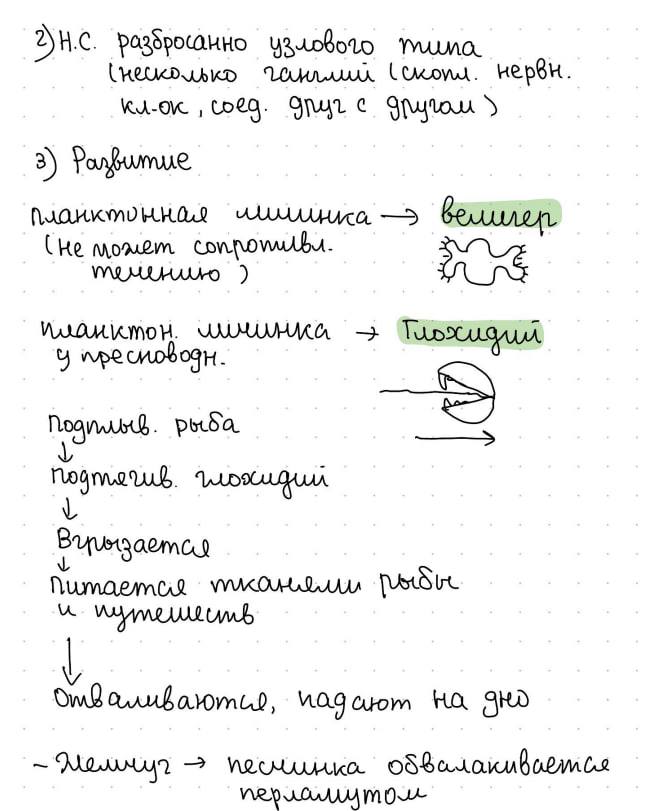 2) Н.С. разбросанно узлового типа
(несколько ганглий (скопл. нервн.
кл-ок, соед. друг с другом)
3) Развитие
планктонная личинка → велигер
(не может сопротивл.
течению)
планктон. личинка → Глохидий
у пресноводн.
Подплыв. рыба
↓
Подтягив. глохидий
↓
Вгрызается
↓
Питается тканями рыбы
и путешеств
↓
Отваливаются, падают на дно
- Жемчуг → песчинка обвалакивается
перламутом